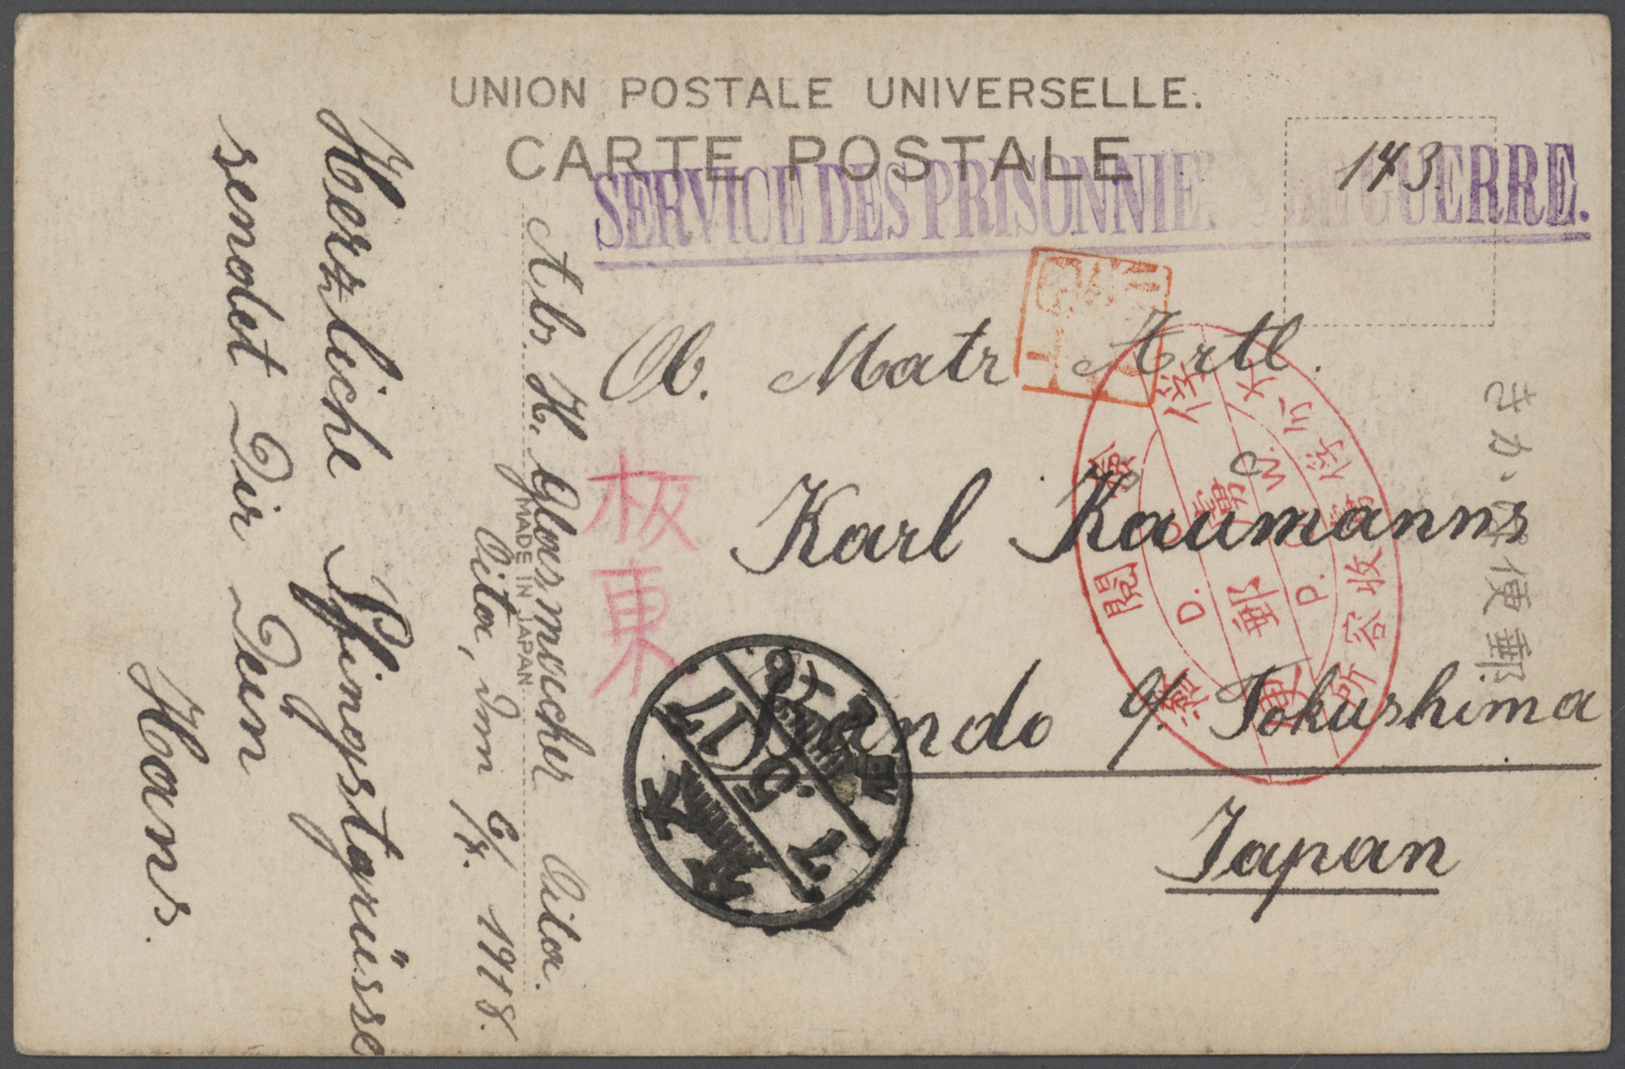 UNION POSTALE UNIVERSELLE.
CARTE POSTALE
SERVICE DES PRISONNIE GUERRE.
143.
Ob. Matr Artl.
Karl Kaumanns
Bando b/ Tokushima
Japan
きかは便郵
板東
俘虜郵便
大分俘虜収容所
検閲濟
P. O. W.
D. O.
大分
7.5.17
Abs. H. Glasmacher Oita.
Oita, den 6/5. 1918.
MADE IN JAPAN
Herzliche Pfingstgrüsse
sendet Dir Dein
Hans.